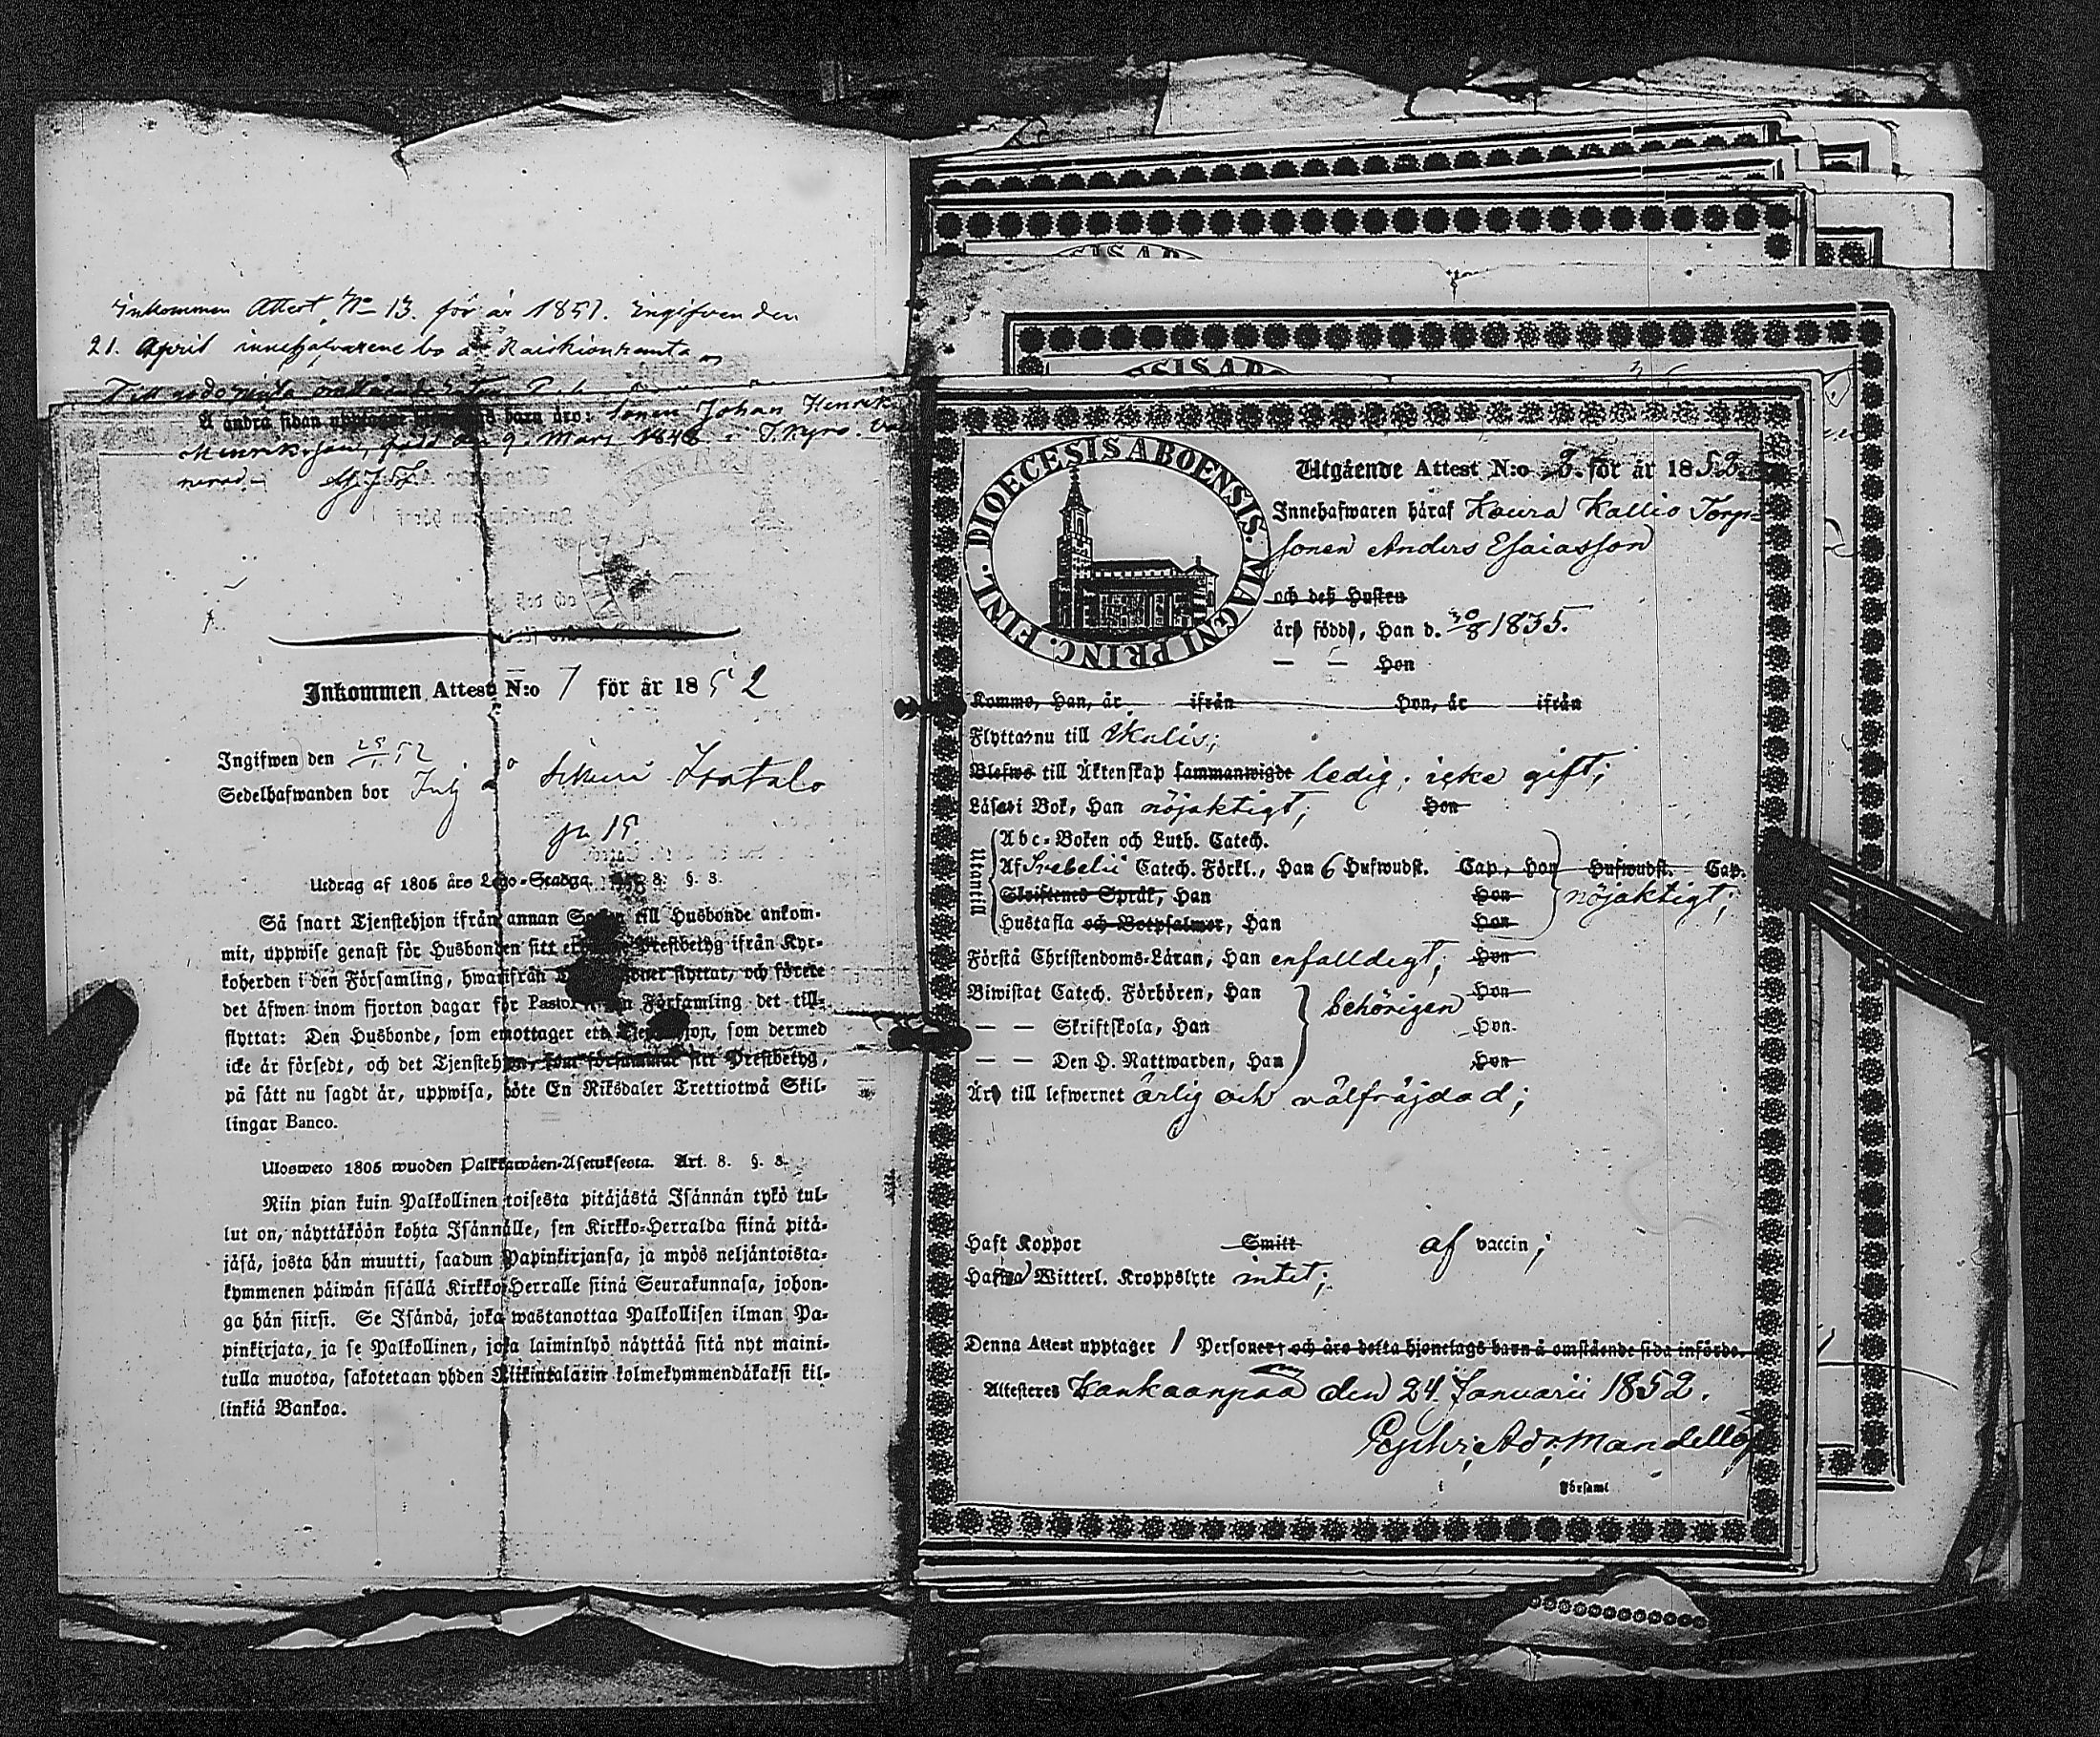 Inkommen Attest No 13. för år 1851. Ingifven den
21. April innehafvarene bo å
Å andra sidan barn äro: Sonen Johan Henrik
Henriksson, född den 9. Mars
Inkommen Attest N:o 7 för år 1852
Ingifwen den
Sedelhafwanden bor
Utdrag af 1805 års Lego-Stadga 8. §. 3.
Så snart Tjenstehjon ifrån annan till Husbonde ankom-
mit, uppwise genast för Husbonden sitt Prestbetyg ifrån Kyr-
koherden i den Församling, hwarifrån flyttat, och förete
det äfwen inom fjorton dagar för Pastor Församling det till-
flyttat: Den Husbonde, som emottager ett, som dermed
icke är försedt, och det Tjenstehjon, som försummar sitt Prestbetyg,
på sätt nu sagdt är, uppwisa, böte En Riksdaler Trettiotwå Skil-
lingar Banco.
Ulosweto 1805 wuoden Palkkawäen-Asetuksesta. Art. 8. §. 3.
Niin pian kuin Palkollinen toisesta pitäjästä Isännän tykö tul-
lut on, näyttäköön kohta Isännälle, sen Kirkko-Herralda siinä pitä-
jäsä, josta hän muutti, saadun Papinkirjansa, ja myös neljäntoista-
kymmenen päiwän sisällä Kirkko-Herralle siinä Seurakunnasa, johon-
ga hän siirsi. Se Isändä, joka wastanottaa Palkollisen ilman Pa-
pinkirjata, ja se Palkollinen, joka laiminlyö näyttää sitä nyt maini-
tulla muotoa, sakotetaan yhden Riikintalarin kolmekymmendäkaksi kil-
linkiä Bankoa.
DIOECESIS ABOENSIS. MAGNI PRINC. FINL.
Utgående Attest N:o 2. för år 1852.
Innehafwaren häraf Koura Kallio Torp-
sonen Anders Esaiasson
och deß Hustru
är född, Han d. 30/8 1835.
— — Hon
Komme, Han, år ifrån Hon, år ifrån
Flyttar nu till Ikalis;
Blefwo till Äktenskap sammanwigde ledig, icke gift;
Läser i Bok, Han nöjaktigt; Hon
Utantill
Abc-Boken och Luth. Catech.
Af Svebelii Catech. Förkl., Han 6 Hufwudst. Cap., Hon Hufwudst. Cap.
Skriftenes Språk, Han Hon nöjaktigt;
Hustafla och Botpsalmer, Han Hon
Förstå Christendoms-Läran, Han enfalldigt; Hon
Biwistat Catech. Förhören, Han behörigen Hon
— — Skriftskola, Han Hon
— — Den H. Nattwarden, Han Hon
Är till lefwernet ärlig och välfräjdad;
Haft Koppor Smitt af vaccin;
Hafwa Witterl. Kroppslyte intet;
Denna Attest upptager 1 Personer, och äro detta hjonelags barn å omstående sida införde.
Attesteres Kankaanpää den 24. Januarii 1852.
i Församl